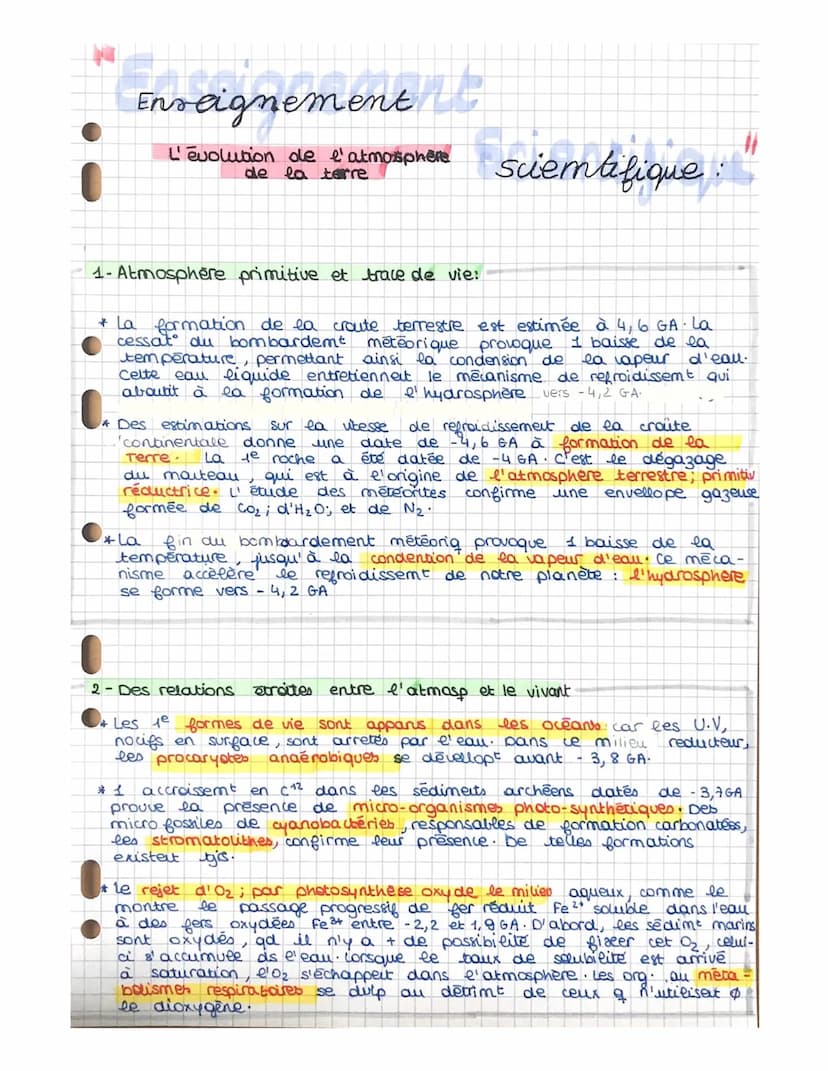 "Enseignement
Scientifique"
Enseignement
scientifique :
L'évolution de l'atmosphère
de la terre
1- Atmosphère primitive et trace de vie:
* La formation de la croute terrestre est estimée à 4,6 GA. La
cessat° du bombardemt météorique provoque 1 baisse de la
température, permettant ainsi la condension de la vapeur d'eau.
Cette eau liquide entretiennent le mécanisme de refroidissemt qui
aboutit à la formation de l'hydrosphère vers -4,2 GA.
* Des estimations sur la vitesse de refroidissement de la croûte
continentale donne une date de -4,6 GA à formation de la
Terre. La 1e roche a été datée de -4 GA. C'est le dégazage
du manteau, qui est à l'origine de l'atmosphère terrestre; primitiv
réductrice. L'étude des météorites confirme une enveloppe gazeuse
formée de CO2; d'H2O; et de N2.
* La fin du bombardement météoriq provoque 1 baisse de la
température, jusqu'à la condention de la vapeur d'eau. Ce méca-
nisme accélère le refroidissemt de notre planète : l'hydrosphère
se forme vers - 4,2 GA
2 - Des relations étroites entre l'atmosp et le vivant
* Les 1e formes de vie sont apparus dans les océans: car les U.V,
nocifs en surface, sont arretés par l'eau. Dans ce milieu reducteur,
les procaryotes anaérobiques se développt avant - 3,8 GA.
* 1 accroissemt en C12 dans les sédiments archéens datés de -3,7GA
prouve la présence de micro-organismes photo-synthétiques. Des
micro fossiles de cyanobactéries, responsables de formation carbonatées,
les stromatolithes, confirme leur présence. De telles formations
existent tjs.
* Le rejet d'O2; par photosynthèse oxyde le milieu aqueux, comme le
montre le passage progressif de fer réduit Fe2+ soluble dans l'eau
à des fers oxydées Fe3+ entre -2,2 et 1,9 GA. D'abord, les sédimt marins
sont oxydés, qd il n'y a + de possibilité de fixer cet O2, celui-
ci s'accumule ds l'eau. Lorsque le taux de solubilité est arrivé
à saturation, l'O2 s'échappent dans l'atmosphère. Les org. au méta-
bolismes respiratoires se dvlp au détrimt de ceux q n'utilisent Ø
le dioxygène.